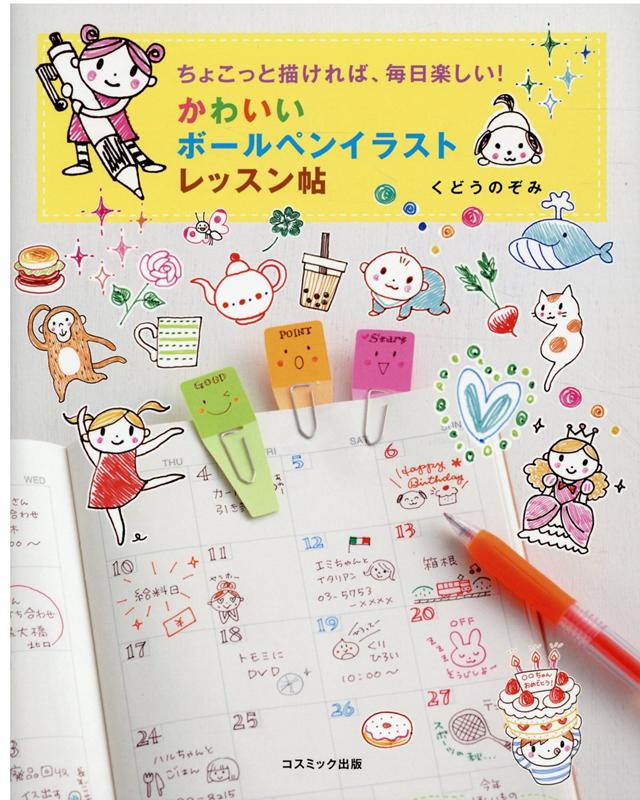 ちょこっと描ければ、毎日楽しい!
かわいい
ボールペンイラスト
レッスン帖
くどうのぞみ
GOOD
POINT
Stars
WED
THU
FRI
SAT
SUN
4
5
6
Happy
Birthday
10
給料日
11
12
エミちゃんと
イタリアン
03-5753
-××××
13
箱根
17
18
トモミに
DVD
19
くり
ひろい
10:00〜
20
OFF
24
ハルちゃんと
ごはん
25
26
27
スポーツの秋…
今年
○○ちゃん
おめでとう!
コスミック出版